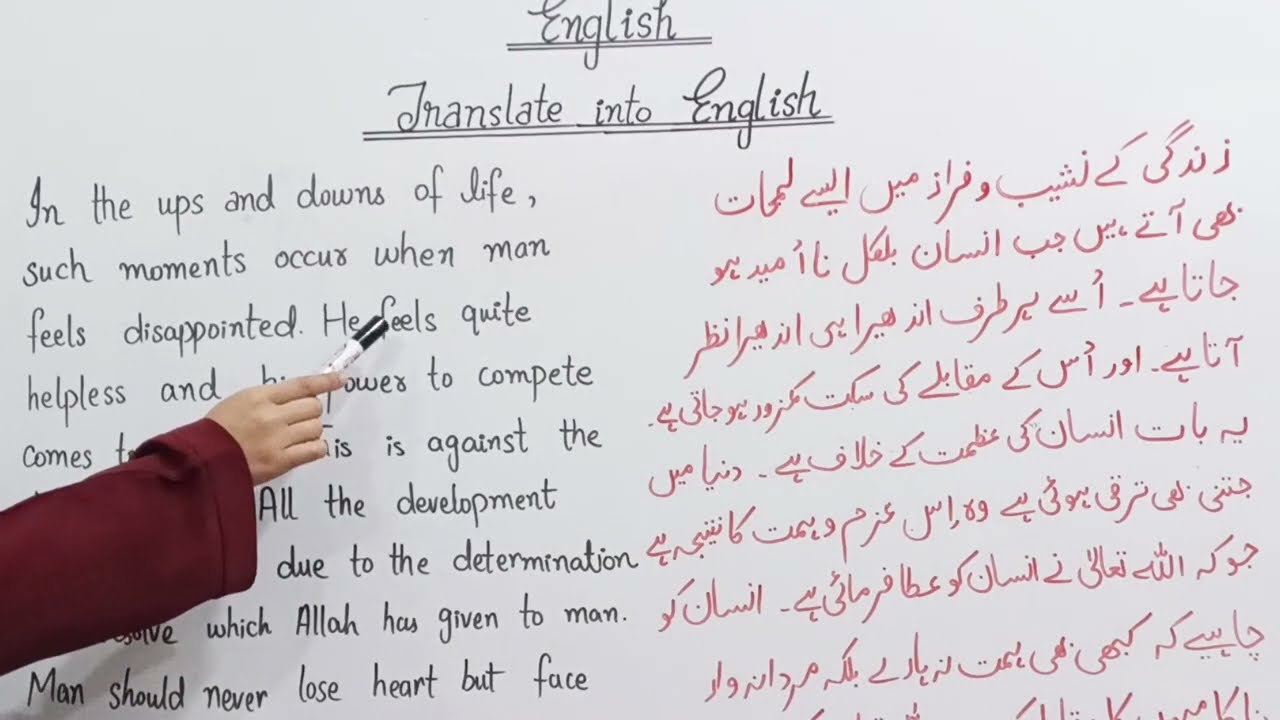 English
Translate into English
In the ups and downs of life,
such moments occur when man
feels disappointed. He feels quite
helpless and power to compete
comes is against the
All the development
due to the determination
which Allah has given to man.
Man should never lose heart but face
زندگی کے نشیب و فراز میں ایسے لمحات
بھی آتے ہیں جب انسان بلکل نا اُمید ہو
جاتا ہے۔ اُسے ہر طرف اندھیرا ہی اندھیرا نظر
آتا ہے۔ اور اُس کے مقابلے کی سکت کمزور ہو جاتی ہے۔
یہ بات انسان کی عظمت کے خلاف ہے۔ دنیا میں
جتنی بھی ترقی ہوئی ہے وہ اِس عزم و ہمت کا نتیجہ ہے
جو کہ اللہ تعالیٰ نے انسان کو عطا فرمائی ہے۔ انسان کو
چاہیے کہ کبھی بھی ہمت نہ ہارے بلکہ مردانہ وار